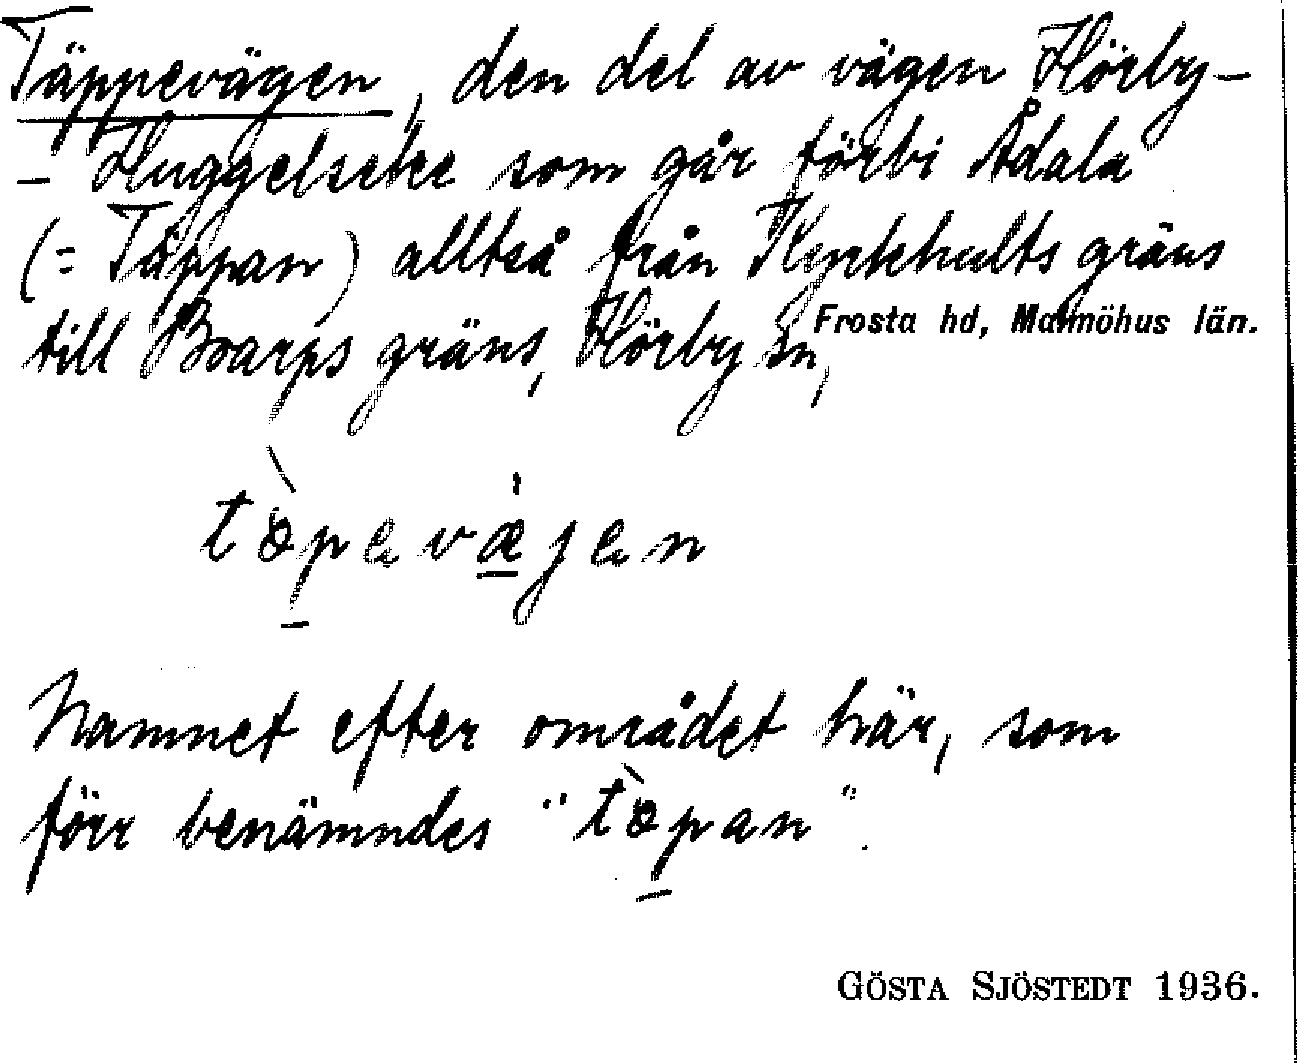 Täppevägen, den del av vägen Hörby-
- Huggelseke som går förbi Ådala
(= Täppan) alltså från Kyrkhults gräns
till Boarps gräns, Hörby sn,
Frosta hd, Malmöhus län.
tæ̀pevæ̀jen
Namnet efter området här, som
förr benämndes "tæ̀pan".
GÖSTA SJÖSTEDT 1936.